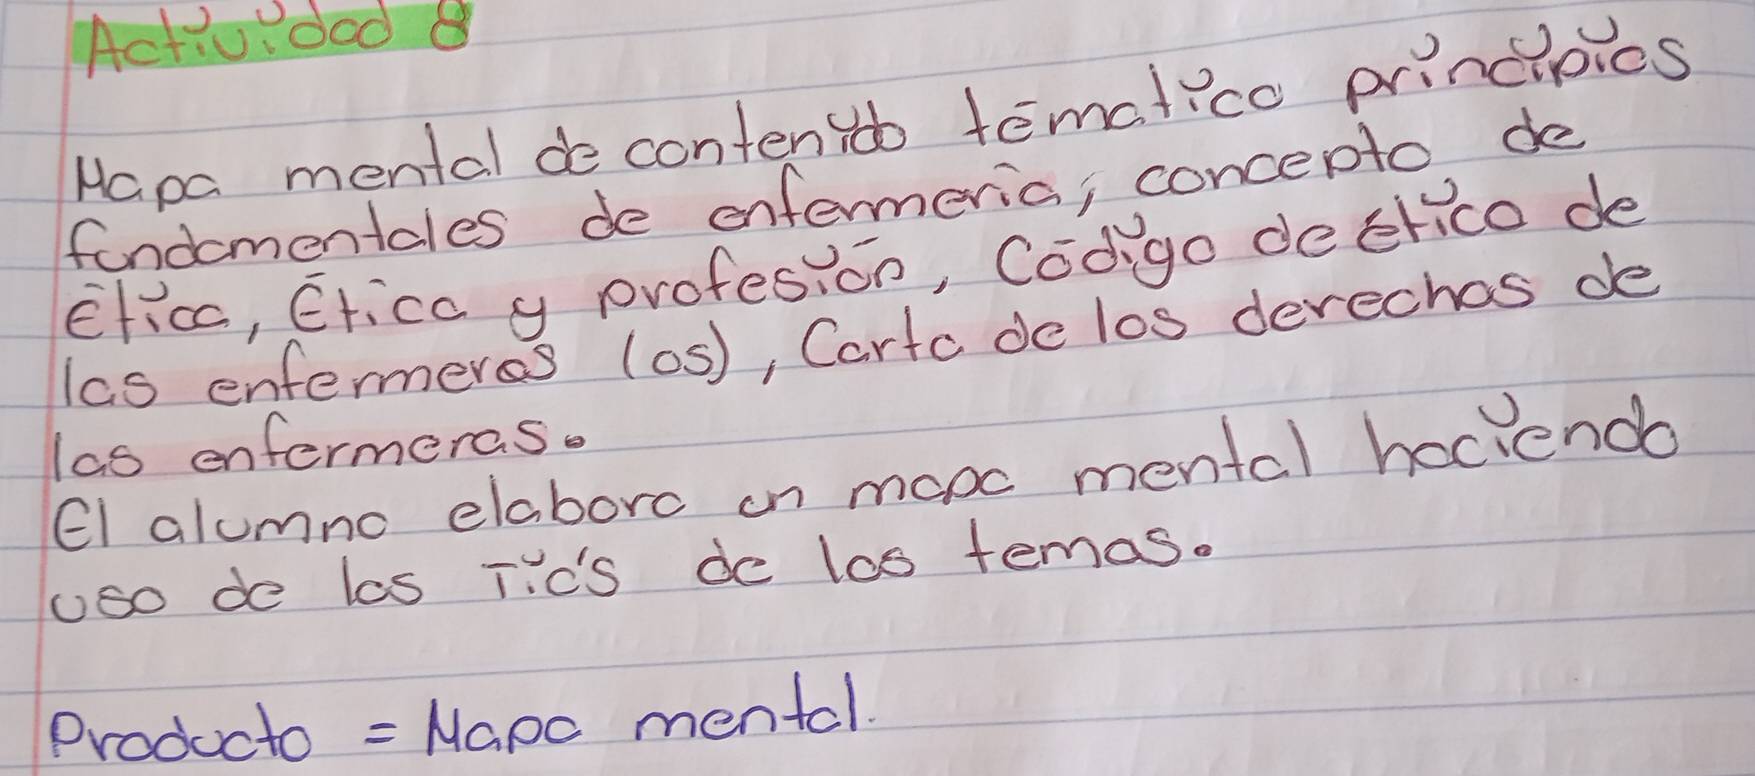 Actividad 8
Mapa mental de contenido tématico principios
fundamentales de enfermeria, concepto de
ética, Ética y profesión, Código de etico de
las enfermeras (os), Carta de los derechos de
las enfermeras.
El alumno elabora un mapa mental haciendo
uso de las Tic's de los temas.
Producto = Mapa mental.